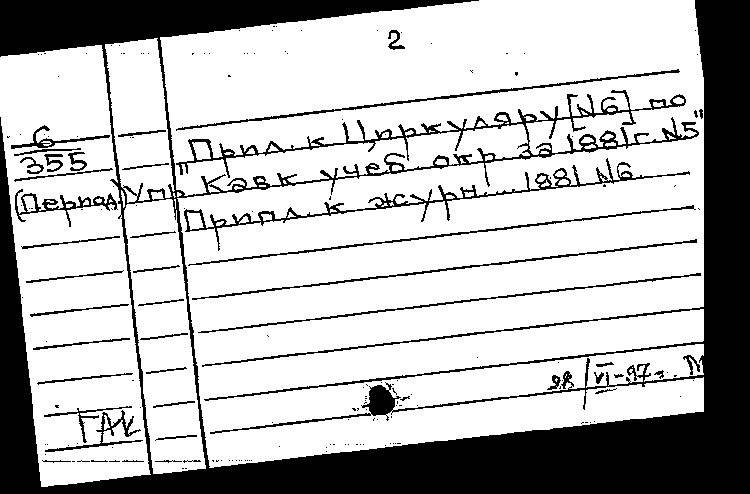 2
6
355
(Период.)
"Прил. к Циркуляру [N6] по
Упр Кавк учеб окр за 1881 г. N5"
Прил. к журн... 1881 N6
28/VI-37г. М
ГАК